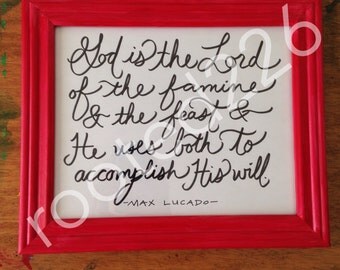 God is the Lord
of the famine
& the feast &
He uses both to
accomplish His will.
-MAX LUCADO-
rooted226